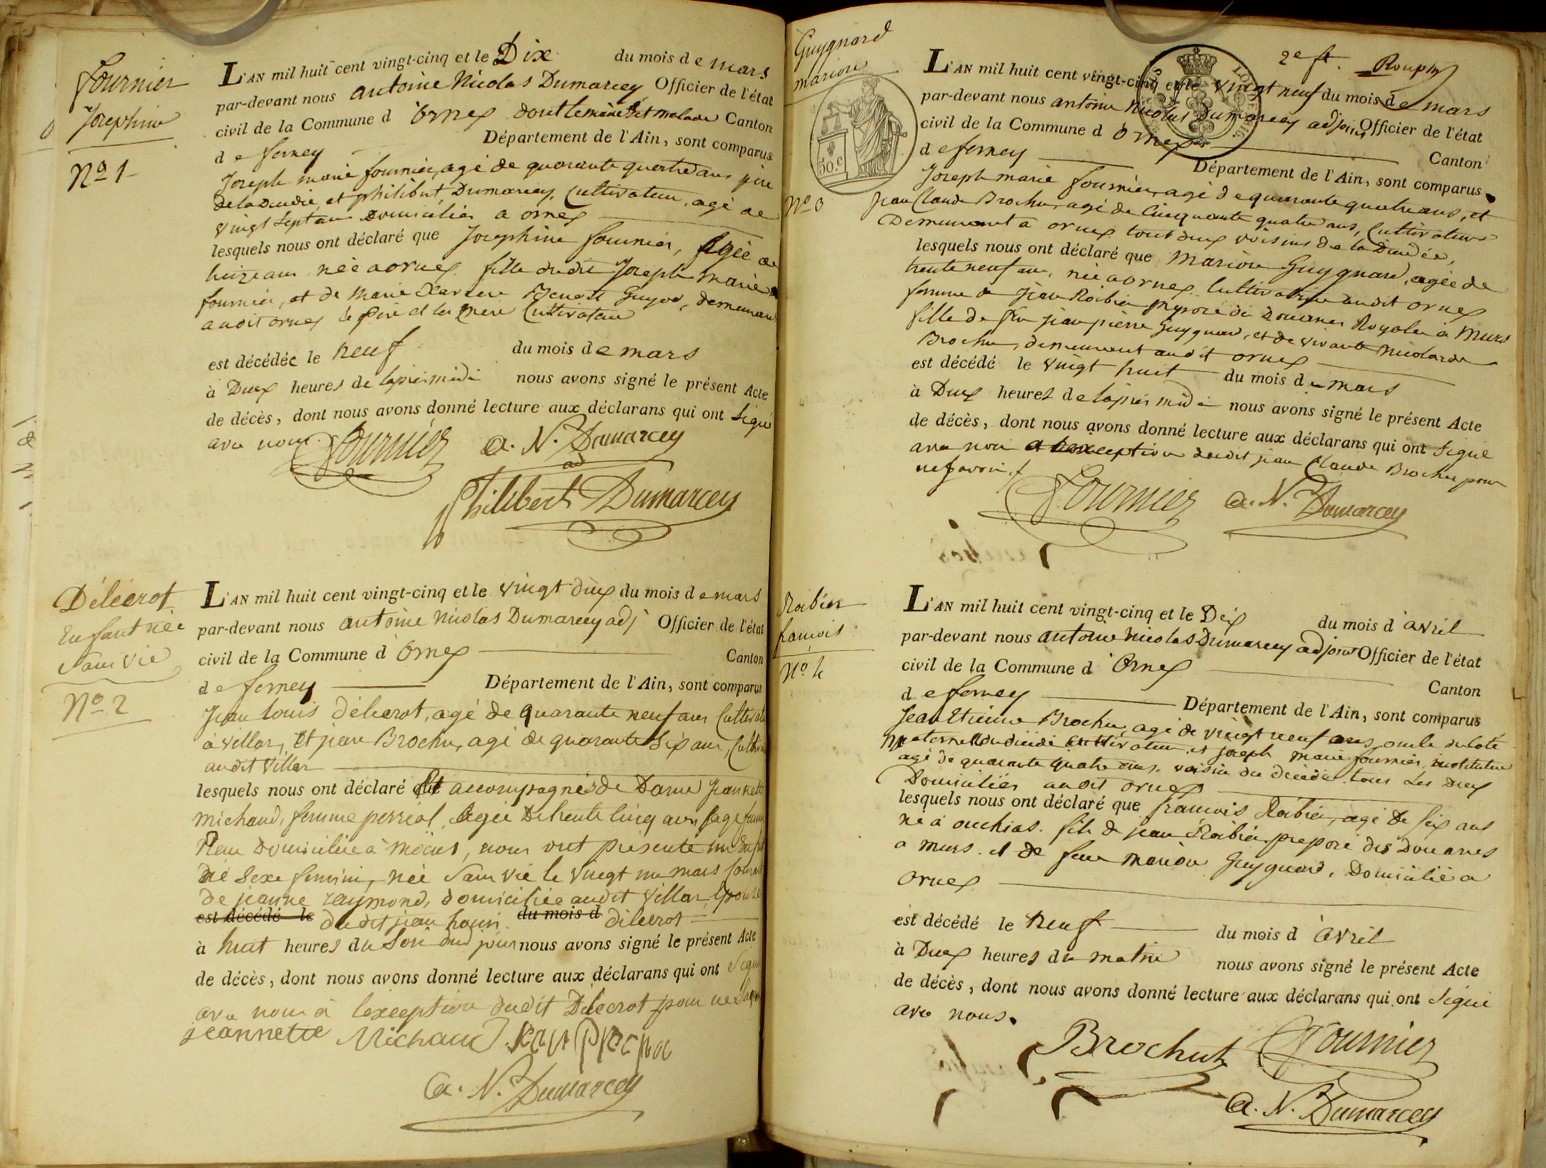 Fournier
Josephine
N° 1
L'AN mil huit cent vingt-cinq et le Dix du mois de mars
par-devant nous antoine Nicolas Dumarcey Officier de l'état
civil de la Commune d'Ornex dont le maire est malade Canton
de ferney Département de l'Ain, sont comparus
Joseph marie fournier, agé de quarante quatre ans père
de la Dédée, et philibert Dumarcey, Cultivateur, agé de
vingt sept ans Domiciliés a ornex
lesquels nous ont déclaré que Josephine fournier, Agée de
treize ans née a ornex fille dudit Joseph marie
fournier, et de marie Benoit Guyot, demeurant
audit ornex le père et la mère Cultivateur
est décédée le neuf du mois de mars
à Deux heures de laprès midi nous avons signé le présent Acte
de décès, dont nous avons donné lecture aux déclarans qui ont Signé
avec nous.
Fournier a. N. Dumarcey
ad
Philibert Dumarcey
Délécrot
Enfant née
Sans vie
N° 2
L'AN mil huit cent vingt-cinq et le vingt deux du mois de mars
par-devant nous antoine Nicolas Dumarcey adj Officier de l'état
civil de la Commune d'Ornex Canton
de ferney Département de l'Ain, sont comparus
Jean Louis Délécrot, agé de quarante neuf ans Cultivat
à Villar, Et jean Brochu, agé de quarante Six ans, Cultiv
audit Villar
lesquels nous ont déclaré Et accompagnés de Dame Jeannette
michaud, femme perréal, Agée De trente Cinq ans Sage femme
Domiciliée à moëns, nous ont présenté un Enfant
de Sexe féminin, née Sans vie le vingt un mars
de jeanne raymond, domiciliée audit Villar, Epouse
est décédé le dudit jean louis du mois d délécrot
à huit heures du Soir dud jour nous avons signé le présent Acte
de décès, dont nous avons donné lecture aux déclarans qui ont Signé
avec nous à lexception dudit Délécrot pour ne
jeannette Michaud jean Brochu
a. N. Dumarcey
Guygnard
marion
N° 3
50.c
2e ft.
L'AN mil huit cent vingt-cinq et le vingt neuf du mois de mars
par-devant nous antoine Nicolas Dumarcey adjoint Officier de l'état
civil de la Commune d'Ornex Canton
de ferney Département de l'Ain, sont comparus
Joseph marie fournier, agé de quarante quatre ans, et
Jean Claude Brochu, agé de Cinquante quatre ans, Cultivateurs
Demeurant a ornex tout deux voisins de la Décédée,
lesquels nous ont déclaré que Marion Guygnard, agée de
trente neuf ans, née a ornex Cultivatrice audit ornex
femme de Jean Robier préposé des Douanes Royales a Murs
fille de feu jean pierre Guygnard, et de vivante Nicolarde
Brochu, demeurant audit ornex
est décédé le vingt huit du mois de mars
à Deux heures de laprès midi nous avons signé le présent Acte
de décès, dont nous avons donné lecture aux déclarans qui ont Signé
avec nous a lexception dudit jean Claude Brochu pour
ne savoir.
Fournier a. N. Dumarcey
Robier
francois
N° 4
L'AN mil huit cent vingt-cinq et le Dix du mois d'avril
par-devant nous antoine Nicolas Dumarcey adjoint Officier de l'état
civil de la Commune d'Ornex Canton
de ferney Département de l'Ain, sont comparus
Jean Etienne Brochu, agé de vingt neuf ans, oncle du coté
Maternel du décédé Cultivateur et Joseph marie fournier, instituteur
agé de quarante quatre ans, voisin du décédé tous Les Deux
Domiciliés audit ornex
lesquels nous ont déclaré que francois Robier, agé De Six ans
né à fils de jean Robier préposé des Douanes
a murs. et de feue marion Guygnard, Domicilié a
ornex
est décédé le neuf du mois d'avril
à Deux heures du matin nous avons signé le présent Acte
de décès, dont nous avons donné lecture aux déclarans qui ont Signé
avec nous.
Brochut Fournier
a. N. Dumarcey